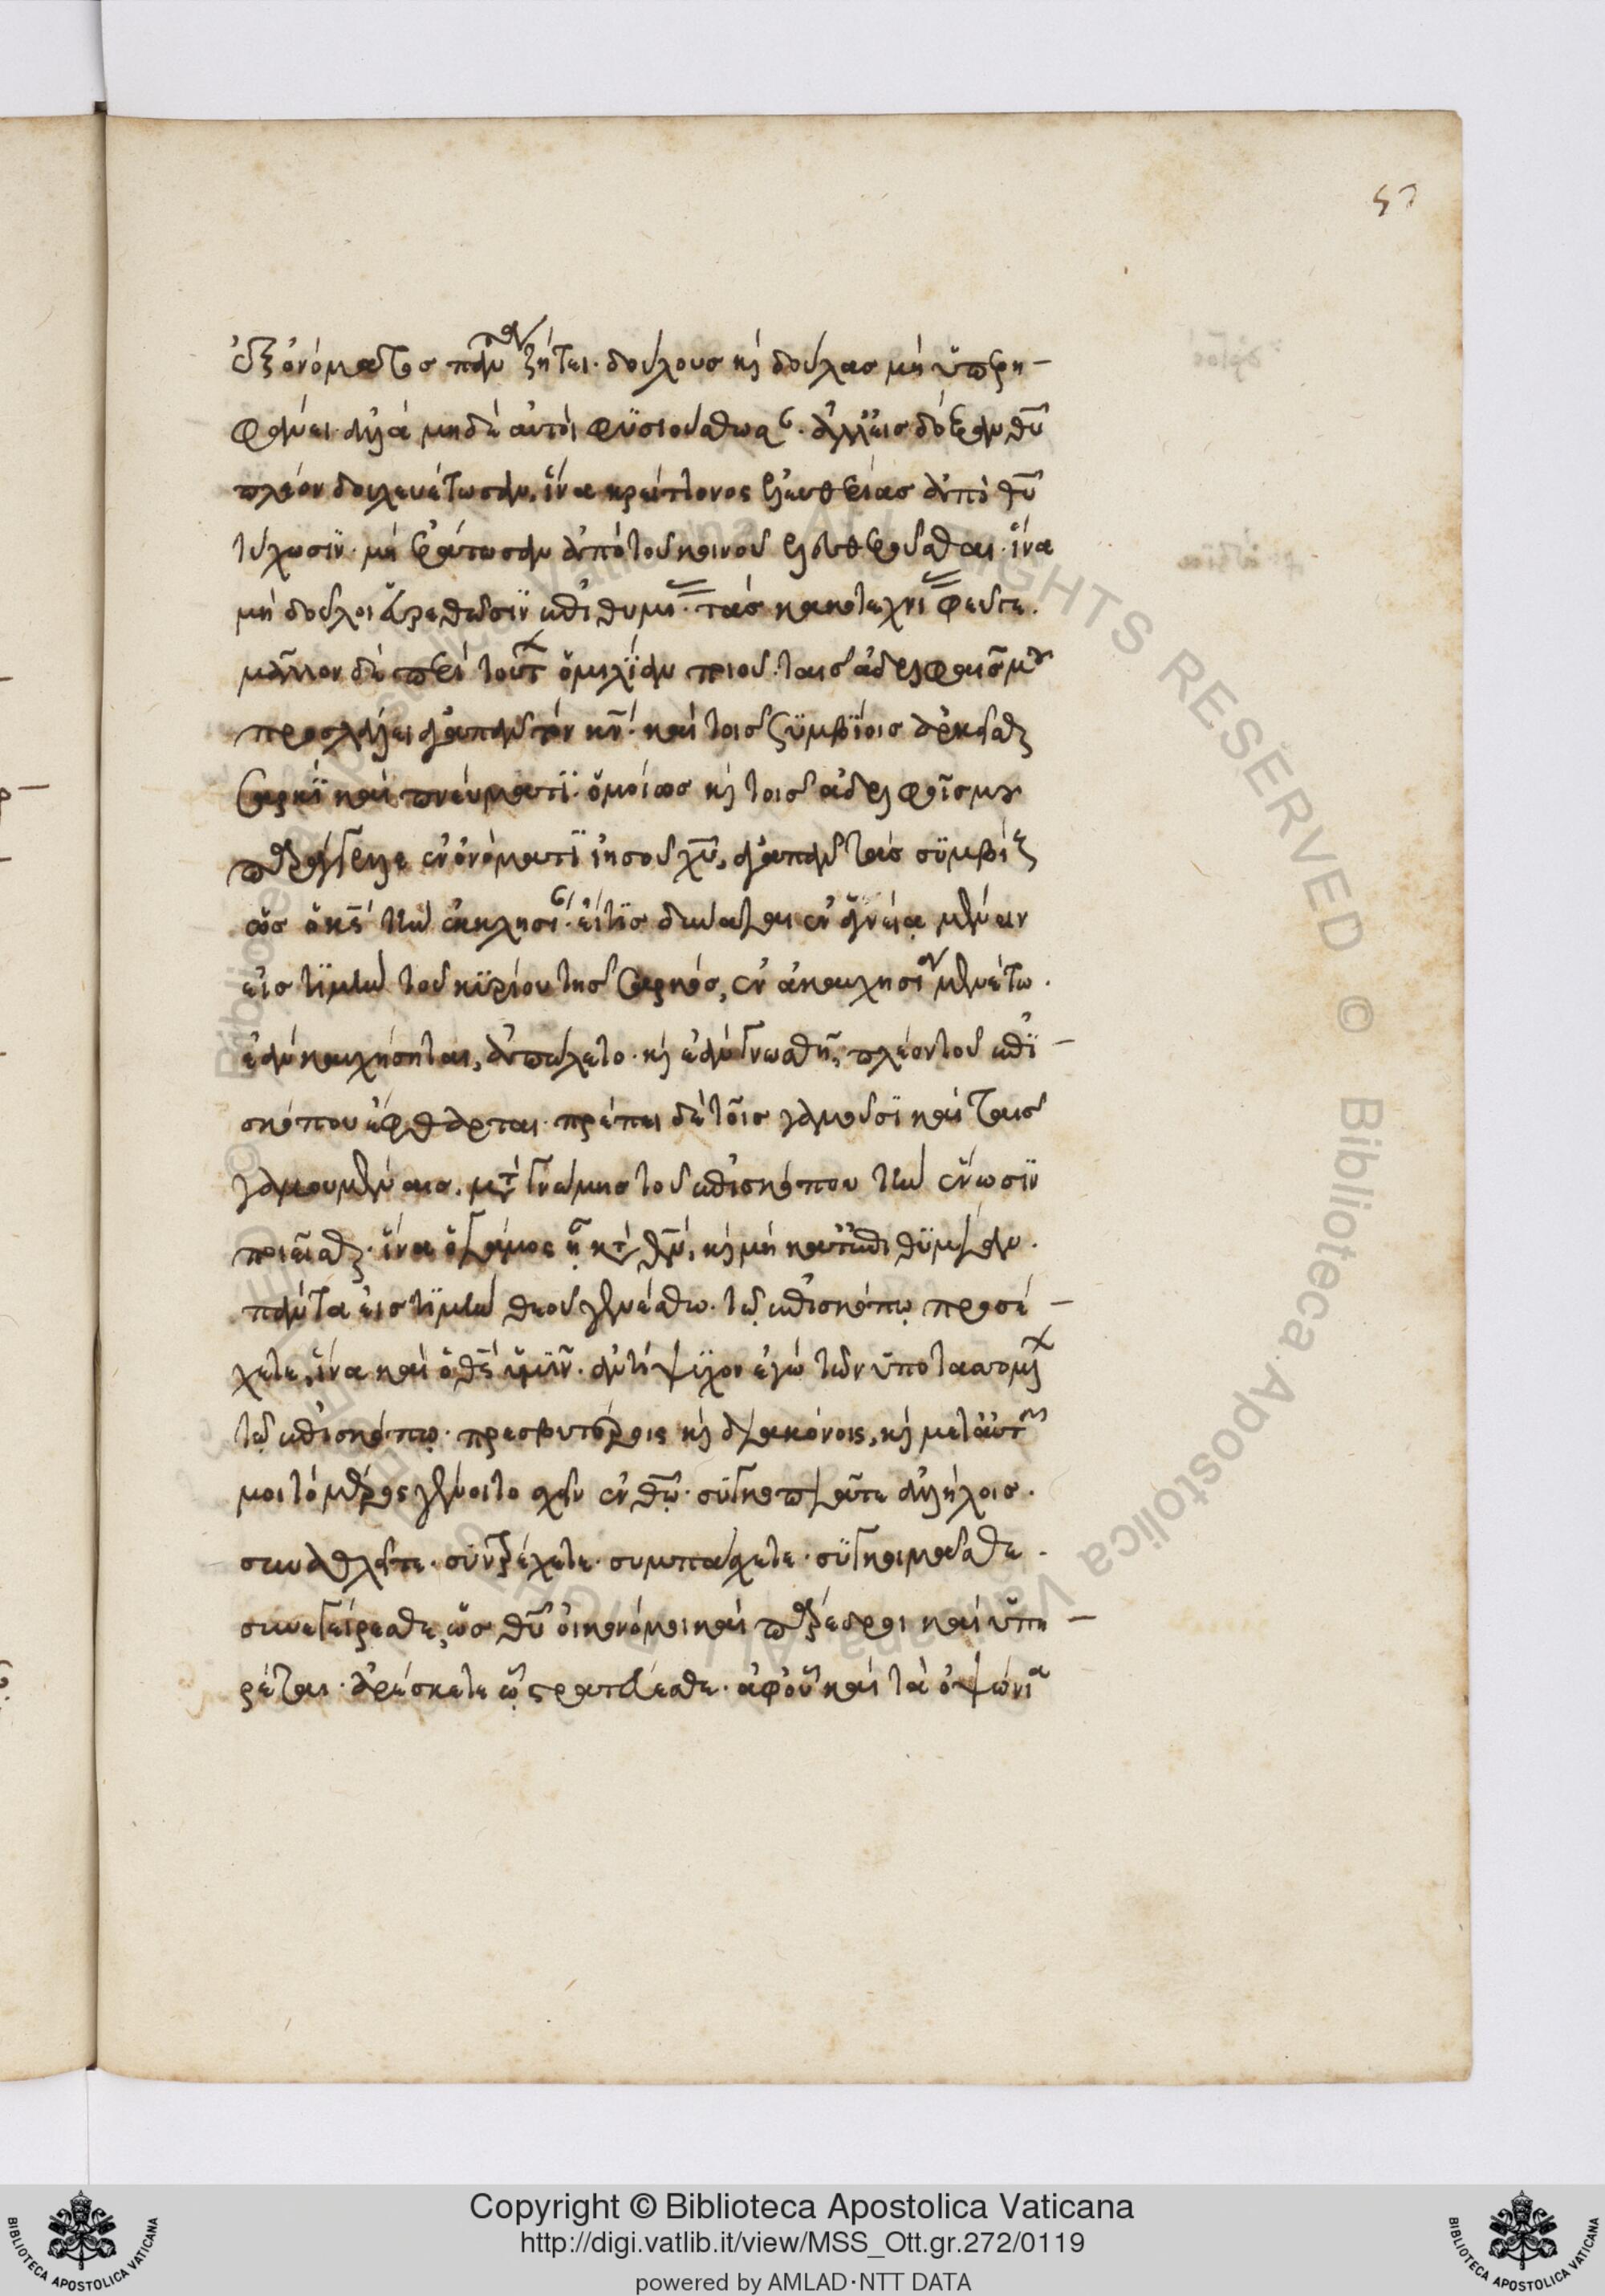 57
ἐξ ὀνόματος πάντων ζήτει· δούλους κ(αὶ) δούλας μὴ ὑπερη–
φάνει· ἀλλὰ μηδὲ αὐτοὶ φϋσιούσθωσαν· ἀλλ' εἰς δόξαν θῦ
πλέον δουλευέτωσαν, ἵνα κρείττονος ἐλευθερίας ἀπὸ θῦ
τύχωσϊν· μὴ ἐράτωσαν ἀπὸ τοῦ κοινοῦ ἐλευθεροῦσθαι· ἵνα
μὴ δοῦλοι εὑρεθῶσϊν ἐπιθυμί(ας)· τὰς κακοτεχνί(ας) φεῦγε.
μᾶλλον δὲ περὶ τούτων ὁμιλΐαν ποιοῦ. ταῖς ἀδελφαῖς μου
προσλάλει ἀγαπᾶν τὸν κν̅· καὶ τοῖς συμβΐοις ἀρκεῖσθαι
σαρκῒ καὶ πνεύματϊ· ὁμοίως κ(αὶ) τοῖς ἀδελφοῖς μου
παράγγελλε ἐν ὀνόματϊ ἰησοῦ χῦ, ἀγαπᾶν τὰς συμβίους
ὡς ὁ κς̅ τὴν ἐκκλησίαν· εἴ τϊς δύναται ἐν ἁγνείᾳ μένειν
εἰς τϊμὴν τοῦ κυρίου τῆς σαρκός, ἐν ἀκαυχησίᾳ μενέτω.
ἐὰν καυχήσηται, ἀπώλετο· κ(αὶ) ἐὰν γνωσθῇ, πλέον τοῦ ἐπϊ–
σκόπου ἔφθαρται· πρέπει δὲ τοῖς γαμοῦσϊ καὶ ταῖς
γαμουμέναις, μετὰ γνώμης τοῦ ἐπισκόπου τὴν ἕνωσϊν
ποιεῖσθαι· ἵνα ὁ γάμος ᾖ κατὰ θν̅, κ(αὶ) μὴ κατ' ἐπιθϋμίαν.
πάντα εἰς τϊμὴν θεοῦ γινέσθω· τῷ ἐπισκόπῳ προσέ–
χετε, ἵνα καὶ ὁ θς̅ ὑμῖν· ἀντίψϋχον ἐγὼ τῶν ὑποτασσομένων
τῷ ἐπισκόπῳ· πρεσβυτέροις κ(αὶ) διακόνοις, κ(αὶ) μετ' αὐτῶν
μοι τὸ μέρος γένοιτο σχεῖν ἐν θῶ· συγκοπιᾶτε ἀλλήλοις.
συναθλεῖτε· συντρέχετε· συμπάσχετε· συγκοιμᾶσθε.
συνεγείρεσθε, ὡς θῦ οἰκονόμοι καὶ πάρεδροι καὶ ὑπη–
ρέται· ἀρέσκετε ᾧ στρατεύεσθε· ἀφ' οὗ καὶ τὰ ὀψώνια
Copyright © Biblioteca Apostolica Vaticana
http://digi.vatlib.it/view/MSS_Ott.gr.272/0119
powered by AMLAD·NTT DATA
BIBLIOTECA APOSTOLICA VATICANA
BIBLIOTECA APOSTOLICA VATICANA